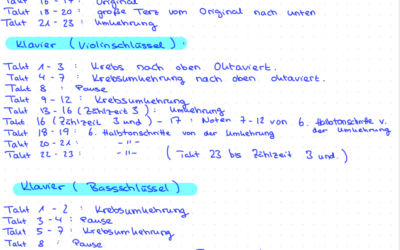 Takt 16 - 17 : Original
Takt 18 - 20 : große Terz vom Original nach unten
Takt 21 - 23 : Umkehrung
Klavier ( Violinschlüssel ) :
Takt 1 - 3 : Krebs nach oben Oktaviert.
Takt 4 - 7 : Krebsumkehrung nach oben oktaviert.
Takt 8 : Pause
Takt 9 - 12 : Krebsumkehrung
Takt 13 - 16 ( Zählzeit 3 ) : Umkehrung
Takt 16 ( Zählzeit 3 und ) - 17 : Noten 7 - 12 von 6. Halbtonschritte v. der Umkehrung
Takt 18 - 19 : 6. Halbtonschritte von der Umkehrung
Takt 20 - 21 : - " -
Takt 22 - 23 : - " - ( Takt 23 bis Zählzeit 3 und. )
Klavier ( Bassschlüssel )
Takt 1 - 2 : Krebsumkehrung
Takt 3 - 4 : Pause
Takt 5 - 7 : Krebsumkehrung
Takt 8 : Pause